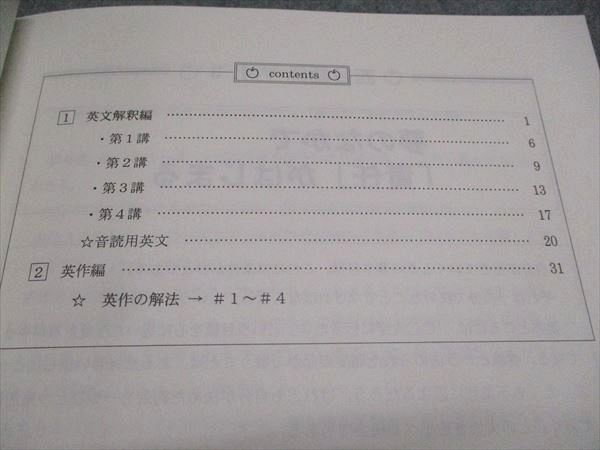 contents
1 英文解釈編 …… 1
・第1講 …… 6
・第2講 …… 9
・第3講 …… 13
・第4講 …… 17
☆音読用英文 …… 20
2 英作編 …… 31
☆ 英作の解法 → #1～#4